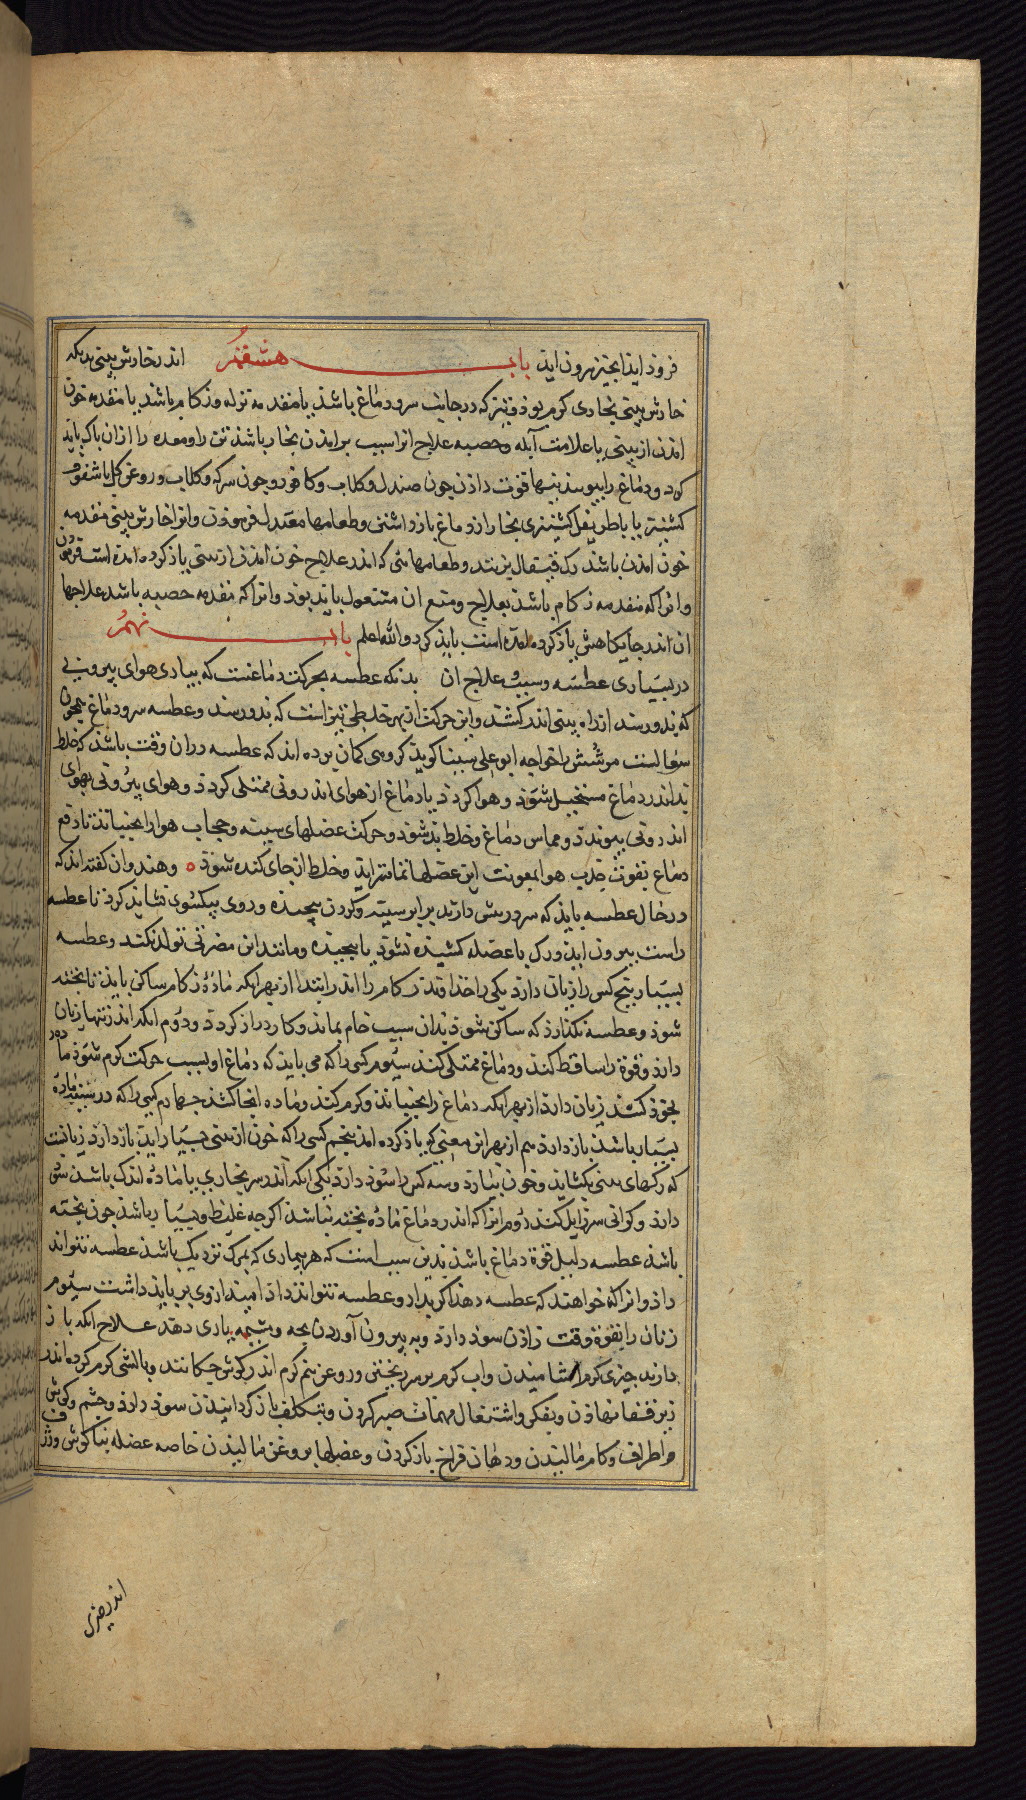 فروذ آید آنجیز برون آید باب هشتم اندر خارش بینی بدانکه
خارش بینی بخاری کرم بوذ و تیز که در جانب سر و دماغ باشذ یا مقدمه نزله و زکام باشد یا مقدمه خون
امذن از بینی یا علامت آبله و حصبه علاج انرا سبب برامذن بخار باشذ تن را و معده را ازان پاک بایذ
کرد و دماغ را ببوییذنیها قوت داذن جون صندل و کلاب و کافور و جون سرکه و کلاب و روغن کل باشفوف
کشنیز یا باطریفل کشنیزی بخار از دماغ بازداشتن و طعامها معتدل فرموذن و انرا خارش بینی مقدمه
خون امذن باشذ رک قیفال بزنند و طعامهائی که اندر علاج خون امذن از بینی یاذ کرده امده است فرموذن
و انرا که مقدمه زکام باشذ بعلاج و منع ان مشغول بایذ بوذ و انرا که مقدمه حصبه باشد علاجها
ان اندر جایکاهش یاذ کرده امذه است بایذ کرد والله اعلم باب نهم
در بسیاری عطسه و سبب و علاج ان بدانکه عطسه حرکت دماغست که بیاری هوای بیرونی
که بذو رسد از راه بینی اندر کشد و این حرکت از بهر خلطی تیز است که بذو رسد و عطسه سر و دماغ را همجون
سعالست مر شش را خواجه ابوعلی سینا کوید کروهی کمان برده اند که عطسه دران وقت باشذ که خلط
بد اندر دماغ مستحیل شوذ و هوا کردذ یا دماغ از هوای اندرونی ممتلی کردد و هوای بیرونی بهوای
اندرونی بیوندد و مماس دماغ و خلط بد شوذ و حرکت عضلهای سینه و حجاب هوا را بجنباند تا دفع
دماغ بقوت جذب هوا بمعونت این عضلها تمامتر ایذ و خلط از جای کنده شوذ ه و هندوان کفته اند که
در حال عطسه بایذ که سر در بیش دارند برابر سینه و کردن بیجیذه و روی بیکسوی نشایذ کرد تا عطسه
راست بیرون ایذ و رکی یا عضله کشیذه نشود یا بیجیذه و مانند این مضرتی تولد نکند و عطسه
بسیار بنج کس را زیان دارد یکی را خداوند زکام را اندر ابتدا از بهر آنکه مادهٔ زکام ساکن بایذ تا بخته
شوذ و عطسه نکذارذ که ساکن شوذ بذان سبب خام بماند و کار دراز کردد و دوم آنکه اندر تبها زیان
دارد و قوة را ساقط کند و دماغ ممتلی کند سیوم کسی را که می بایذ که دماغ او بسبب حرکت کرم شوذ ماده
بخوذ کشذ زیان دارد از بهر آنکه دماغ را بجنباند و کرم کند و ماده انجا کشد جهارم کسی را که در سینه ماده
بسیار باشذ باز دارد هم از بهر این معنی که یاذ کرده امذ بنجم کسی را که خون از بینی بسیار ایذ باز دارد زیانست
که رکهای بینی بکشاید و خون بیارد و سه کس را سوذ دارد یکی آنکه اندر سر بخاری یا مادهٔ اندک باشد سوذ
دارد و کرانی سر زایل کند دوم انرا که اندر دماغ مادهٔ بخته باشد اکرجه غلیظ و بسیار باشد جون بخته
باشد عطسه دلیل قوة دماغ باشذ بدین سبب است که هر بیماری که بمرک نزدیک باشد عطسه نتواند
داذ و انرا که خواهند که عطسه دهذ اکر بدارو عطسه نتواند داد امید از وی بر بایذ داشت سیوم
زنان را بقوة وقت زاذن سوذ دارد و به بیرون آوردن بجه و مشیمه یاری دهد علاج آنکه باز
دارند جیزی کرم اشامیدن و اب کرم بر سر ریختن و روغن نیم کرم اندر کوش جکانند و بالشی کرم کرده اندر
زیر قفا نهاذن و بفکر و اشتغال مهمات صبر کردن و بتکلف باز کردانیدن سوذ دارد و جشم و کوش
و اطراف و کام مالیدن و دهان فراخ باز کردن و عضلها بروغن مالیدن خاصه عضله بناکوش و زنخ
اندر جیزی